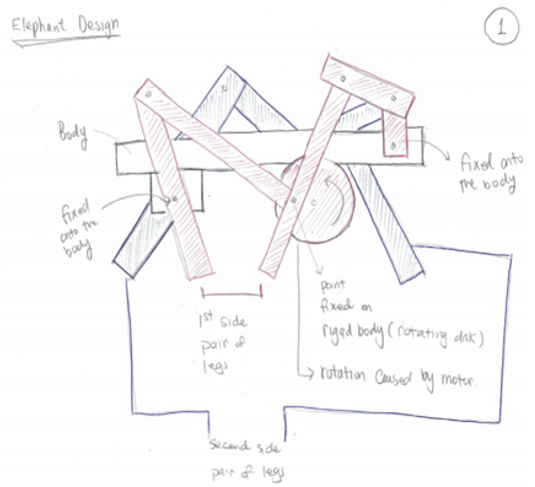 Elephant Design
1
Body
fixed
onto the
body
fixed onto
the body
point
fixed on
rigid body (rotating disk)
rotation caused by motor.
1st side
pair of
legs
second side
pair of legs